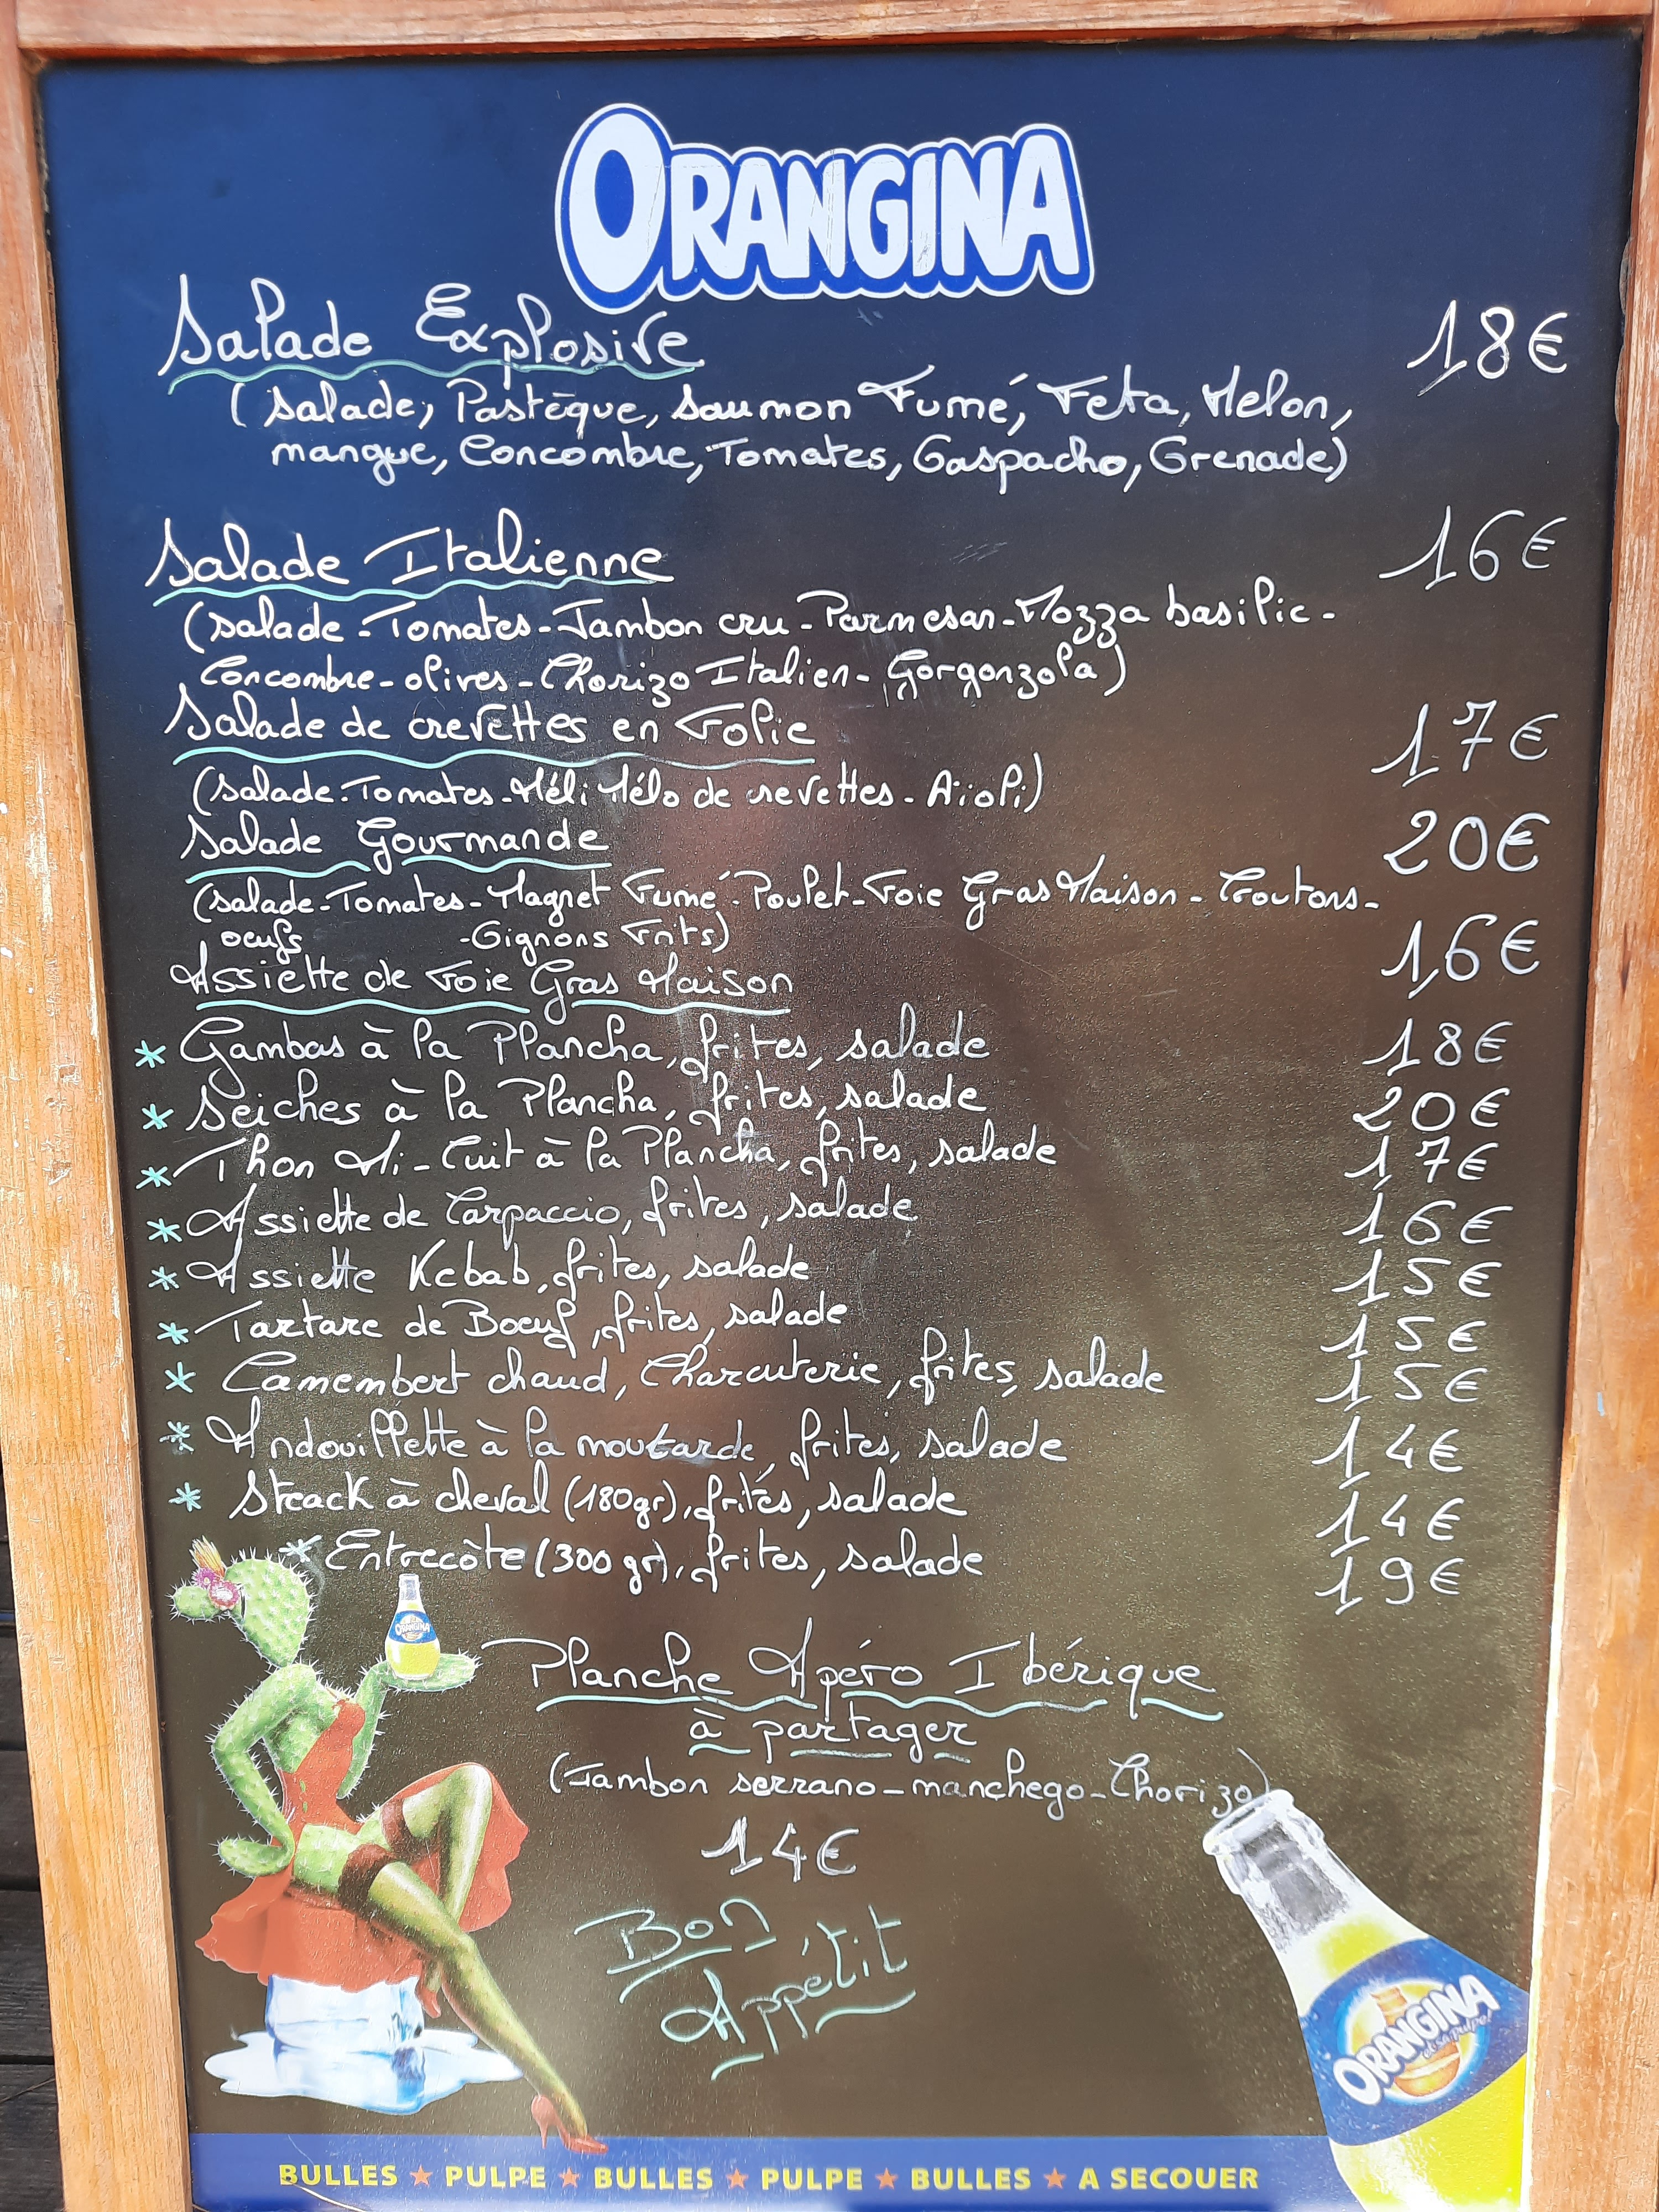 ORANGINA
Salade Explosive 18€
(salade, Pastèque, saumon Fumé, Feta, Melon,
mangue, Concombre, Tomates, Gaspacho, Grenade)
Salade Italienne 16€
(salade-Tomates-Jambon cru-Parmesan-Mozza basilic-
Concombre-olives-Chorizo Italien-Gorgonzola)
Salade de crevettes en Folie 17€
(salade-Tomates-Méli Mélo de crevettes-Aïoli)
Salade Gourmande 20€
(salade-Tomates-Magret Fumé-Poulet-Foie Gras Maison-Croutons-
oeufs -Oignons Frits)
Assiette de Foie Gras Maison 16€
* Gambas à la Plancha, frites, salade 18€
* Seiches à la Plancha, frites, salade 20€
* Thon Mi-Cuit à la Plancha, frites, salade 17€
* Assiette de Carpaccio, frites, salade 16€
* Assiette Kebab, frites, salade 15€
* Tartare de Boeuf, frites, salade 15€
* Camembert chaud, Charcuterie, frites, salade 15€
* Andouillette à la moutarde, frites, salade 14€
* Steack à cheval (180gr), frites, salade 14€
* Entrecôte (300gr), frites, salade 19€
ORANGINA
Planche Apéro Ibérique
à partager
(Jambon serrano-manchego-Chorizo)
14€
Bon
Appétit
ORANGINA
BULLES ★ PULPE ★ BULLES ★ PULPE ★ BULLES ★ A SECOUER